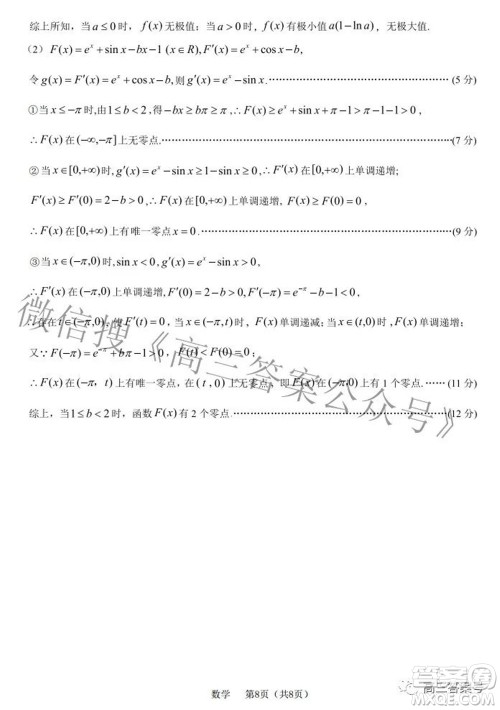 综上所知，当 a≤0 时，f(x) 无极值；当 a>0 时，f(x) 有极小值 a(1-ln a)，无极大值.
（2）F(x)=e^x+sin x-bx-1 (x∈R),F'(x)=e^x+cos x-b,
令 g(x)=F'(x)=e^x+cos x-b,则 g'(x)=e^x-sin x.……(5 分)
①当 x≤-π 时,由 1≤b<2 ,得 -bx≥bπ≥π ,∴F(x)≥e^x+sin x+π-1>π-1-1>0 ,
∴F(x) 在 (-∞,-π] 上无零点.……(7 分)
②当 x∈[0,+∞) 时,g'(x)=e^x-sin x≥1-sin x≥0 ,∴F'(x) 在 [0,+∞) 上单调递增;
F'(x)≥F'(0)=2-b>0 ,∴F(x) 在 [0,+∞) 上单调递增，F(x)≥F(0)=0
∴F(x) 在 [0,+∞) 上有唯一零点 x=0 .……(9 分)
③当 x∈(-π,0) 时, sin x<0, g'(x)=e^x-sin x>0,
∴F'(x) 在 (-π,0) 上单调递增,F'(0)=2-b>0,F'(-π)=e^-π-b-1<0,
∴存在 t∈(-π,0)，使F'(t)=0，当 x∈(-π,t) 时，F(x) 单调递减；当 x∈(t,0) 时，F(x) 单调递增；
又∵F(-π)=e^-π+bπ-1>0，F(t)<F(0)=0.
∴F(x) 在 (-π，t) 上有唯一零点，在 (t,0) 上无零点，即 F(x)在(-π,0) 上有 1 个零点.……(11 分)
综上，当 1≤b<2 时，函数 F(x) 有 2 个零点.……(12 分)
微信搜《高三答案公众号》
数学 第8页（共8页）
高三答案号